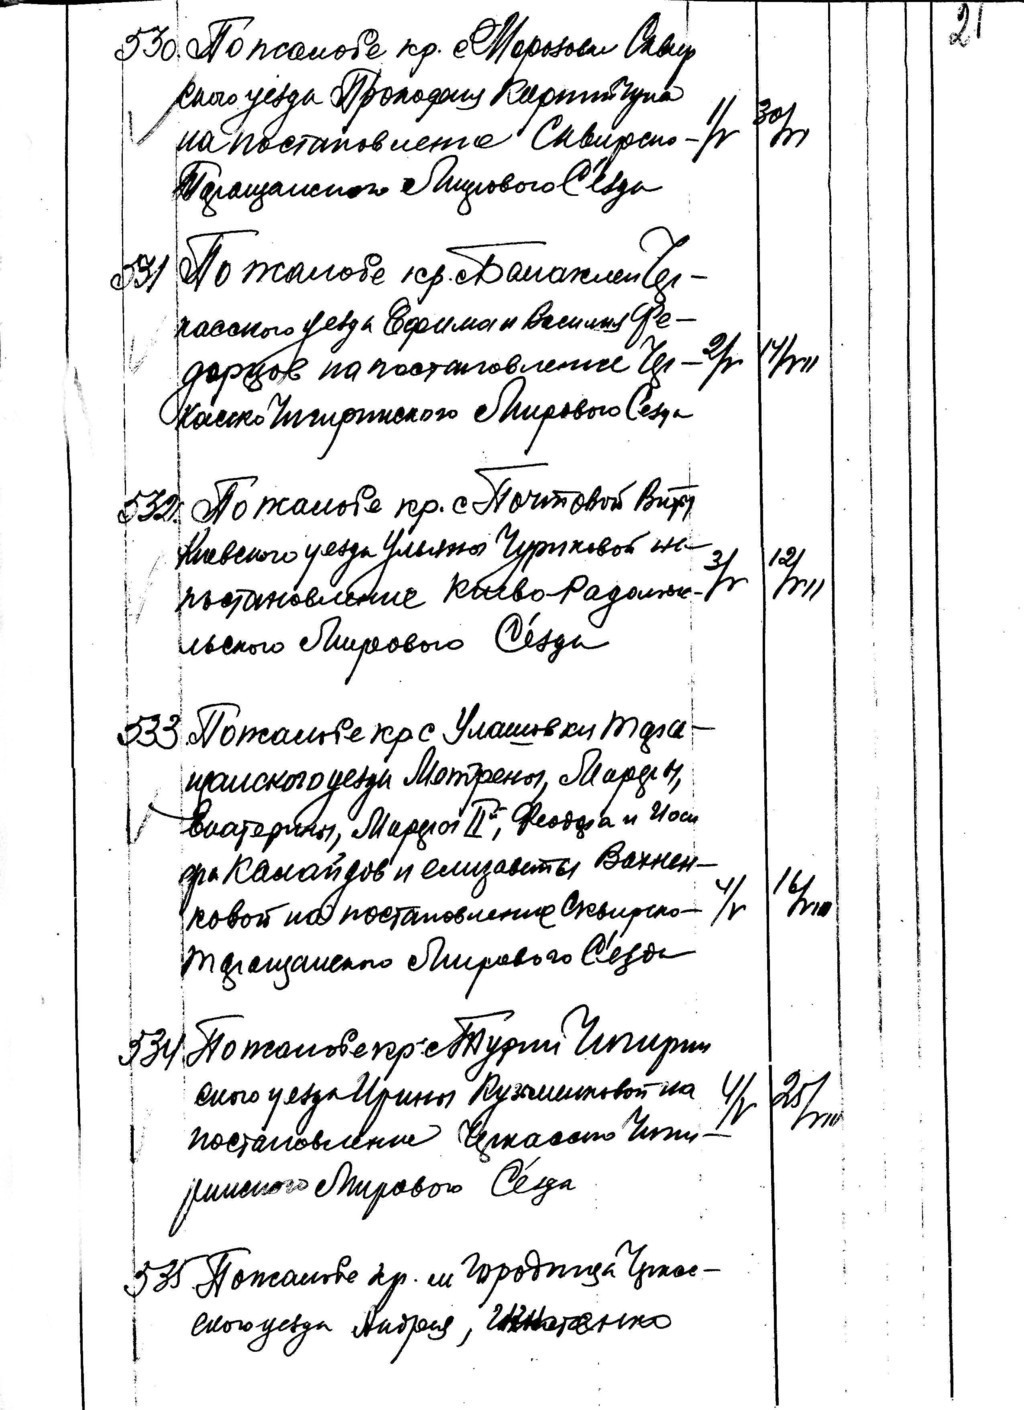 21
530. По жалобе кр. с Морозовки Сквир
ского уезда Прокофия
на постановление Сквирско- 1/V 30/VI
Таращанского Мирового Сʼезда
531 По жалобе кр. с Балаклеи Чер-
касского уезда Ефима и Василия Фе-
доряцов на постановление Чер- 2/V 14/VII
касско Чигиринского Мирового Сʼезда
532. По жалобе кр. с Почтовой Виты
Киевского уезда Ульяны Чуриковой на 3/V 12/VII
постановление Киево-Радомы-
льского Мирового Сʼезда
533 По жалобе кр с Улашовки Тара-
щанского уезда Мотрены, Марфы,
Екатерины, Марфы IIй, Феодора и Иоси
фа Калайдов и Елизаветы Вахнен-
ковой на постановление Сквирско- 4/V 16/VIII
Таращанского Мирового Сʼезда
534 По жалобе кр. с Турии Чигирин
ского уезда Ирины на 4/V 25/VIII
постановление Черкасско Чиги-
ринского Мирового Сʼезда
535 По жалобе кр. м Городища Черкас-
ского уезда Андрея, Игнатенко